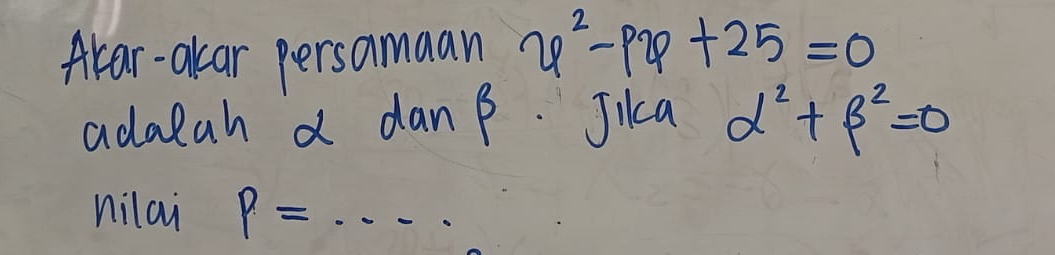 Akar-akar persamaan x²-px+25=0
adalah α dan β. Jika α²+β²=0
nilai p = ....